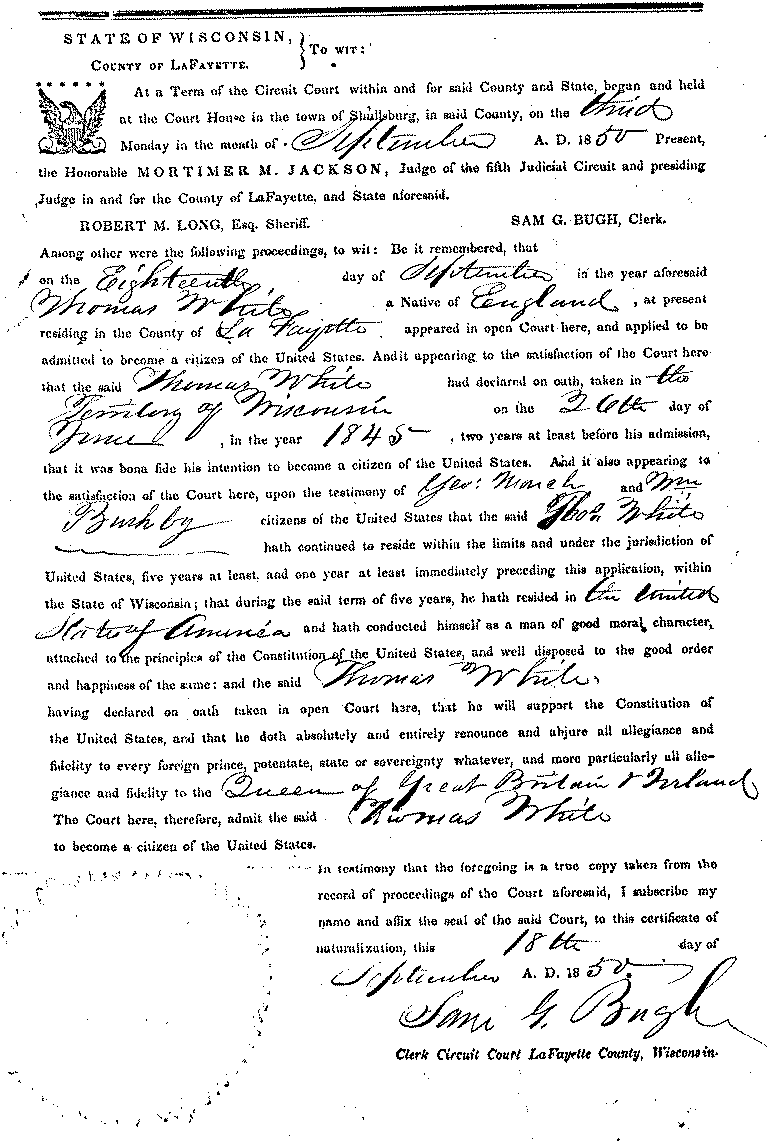 STATE OF WISCONSIN,
COUNTY OF LAFAYETTE.
} TO WIT:
At a Term of the Circuit Court within and for said County and State, began and held
at the Court House in the town of Shullsburg, in said County, on the third
Monday in the month of September A. D. 1850 Present,
the Honorable MORTIMER M. JACKSON, Judge of the fifth Judicial Circuit and presiding
Judge in and for the County of LaFayette, and State aforesaid.
ROBERT M. LONG, Esq. Sheriff. SAM G. BUGH, Clerk.
Among other were the following proceedings, to wit: Be it remembered, that
on the Eighteenth day of September in the year aforesaid
Thomas White a Native of England, at present
residing in the County of La Fayette appeared in open Court here, and applied to be
admitted to become a citizen of the United States. And it appearing to the satisfaction of the Court here
that the said Thomas White had declared on oath, taken in the
Territory of Wisconsin on the 26th day of
June, in the year 1845, two years at least before his admission,
that it was bona fide his intention to become a citizen of the United States. And it also appearing to
the satisfaction of the Court here, upon the testimony of Geo: and Wm
Bushby citizens of the United States that the said Thos White
hath continued to reside within the limits and under the jurisdiction of
United States, five years at least, and one year at least immediately preceding this application, within
the State of Wisconsin; that during the said term of five years, he hath resided in the United
State of America and hath conducted himself as a man of good moral character,
attached to the principles of the Constitution of the United States, and well disposed to the good order
and happiness of the same: and the said Thomas White,
having declared on oath taken in open Court here, that he will support the Constitution of
the United States, and that he doth absolutely and entirely renounce and abjure all allegiance and
fidelity to every foreign prince, potentate, state or sovereignty whatever, and more particularly all alle-
giance and fidelity to the Queen of Great Britain & Ireland
The Court here, therefore, admit the said Thomas White
to become a citizen of the United States.
In testimony that the foregoing is a true copy taken from the
record of proceedings of the Court aforesaid, I subscribe my
name and affix the seal of the said Court, to this certificate of
naturalization, this 18th day of
September A. D. 1850.
Sam G. Bugh
Clerk Circuit Court LaFayette County, Wisconsin.